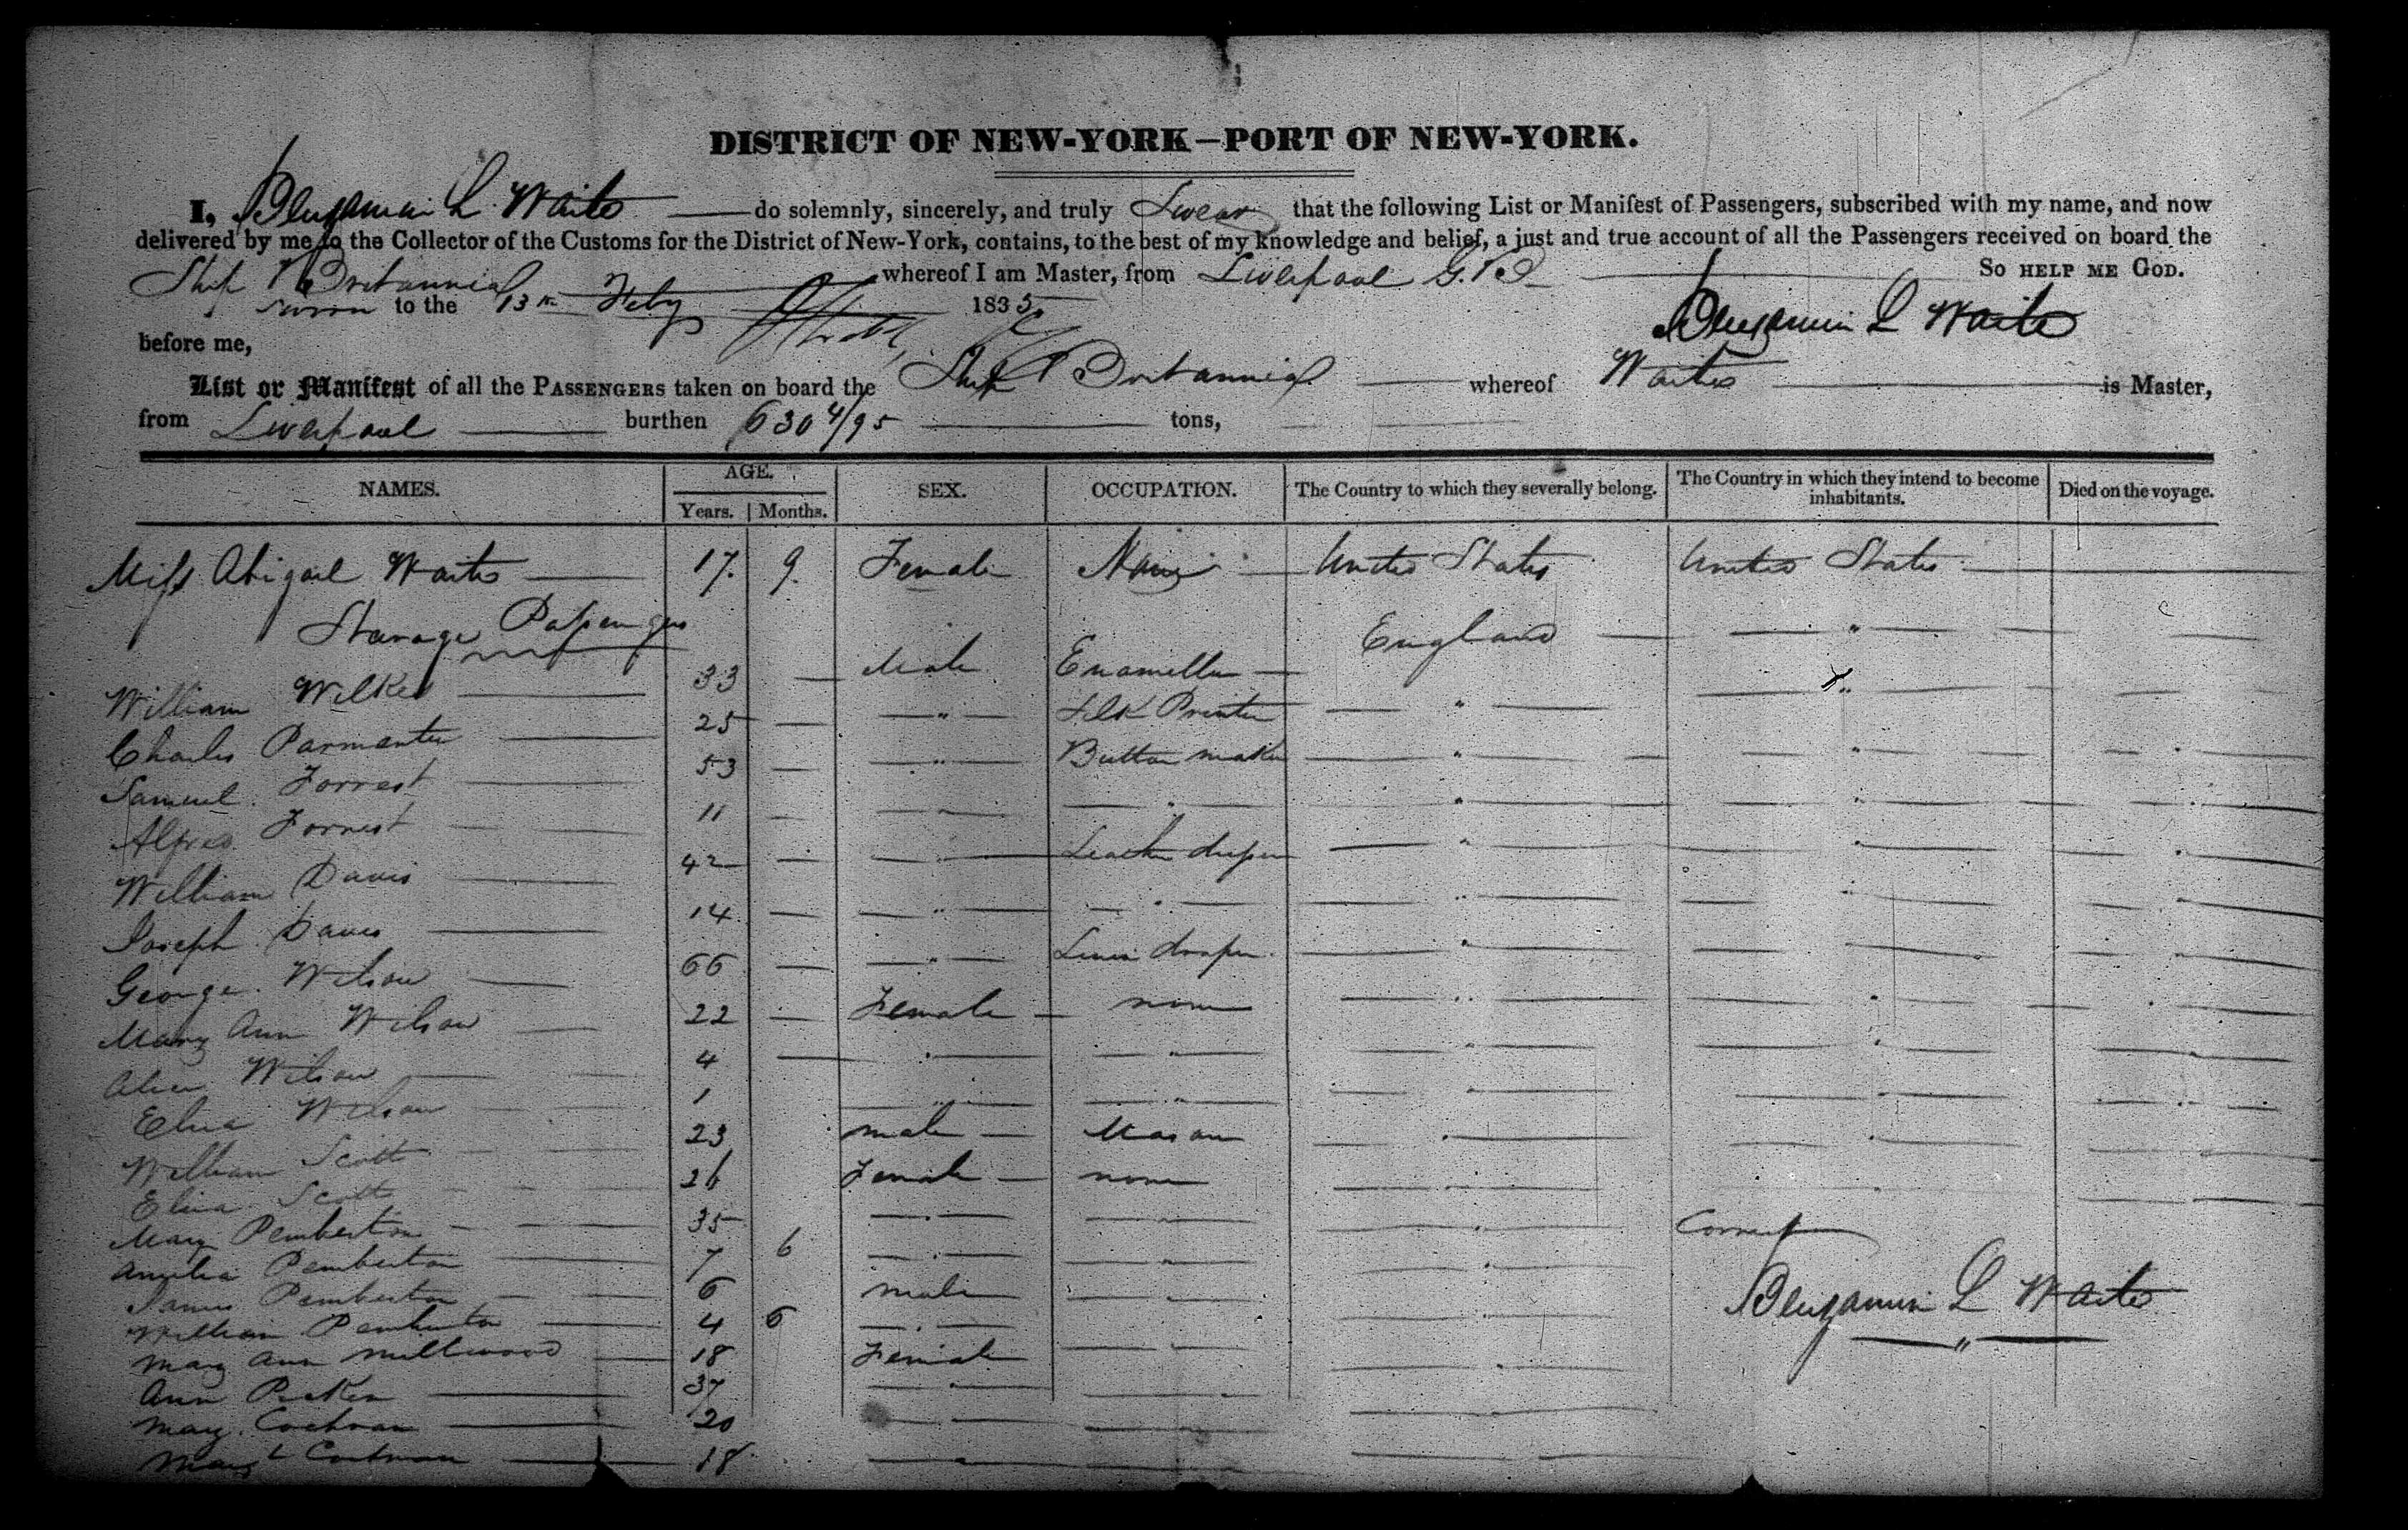 DISTRICT OF NEW-YORK—PORT OF NEW-YORK.
I, Benjamin L. Waite do solemnly, sincerely, and truly Swear that the following List or Manifest of Passengers, subscribed with my name, and now
delivered by me to the Collector of the Customs for the District of New-York, contains, to the best of my knowledge and belief, a just and true account of all the Passengers received on board the
Ship Britannia whereof I am Master, from Liverpool G.B. So HELP ME GOD.
Sworn to the 13th Feby 1835 Benjamin L Waite
before me,
List or Manifest of all the PASSENGERS taken on board the Ship Britannia whereof Waite is Master,
from Liverpool burthen 630 4/95 tons,
NAMES. AGE. Years. Months. SEX. OCCUPATION. The Country to which they severally belong. The Country in which they intend to become inhabitants. Died on the voyage.
Miss Abigail Waite 17. 9. Female United States United States
Steerage Passengers
William Wilkes 33 Male Enameller England "
Charles Parmenter 25 " Silk Printer " "
Samuel Forrest 53 " Button maker " "
Alfred Forrest 11 " " " "
William Davis 42 " " "
Joseph Davis 14 " " " "
George Wilson 66 " Linen draper "
Mary Ann Wilson 22 Female none " "
Alice Wilson 4 " " " "
Eliza Wilson 1 " " " "
William Scott 23 male Mason " "
Eliza Scott 26 Female none " "
Mary Pemberton 35 " " "
Amelia Pemberton 7 6 " " "
James Pemberton 6 male " "
William Pemberton 4 6 " " "
Mary Ann Millwood 18 Female " "
Ann 37 " "
Mary Cochran 20 "
Margt Cochran 18 "
Correct
Benjamin L Waite